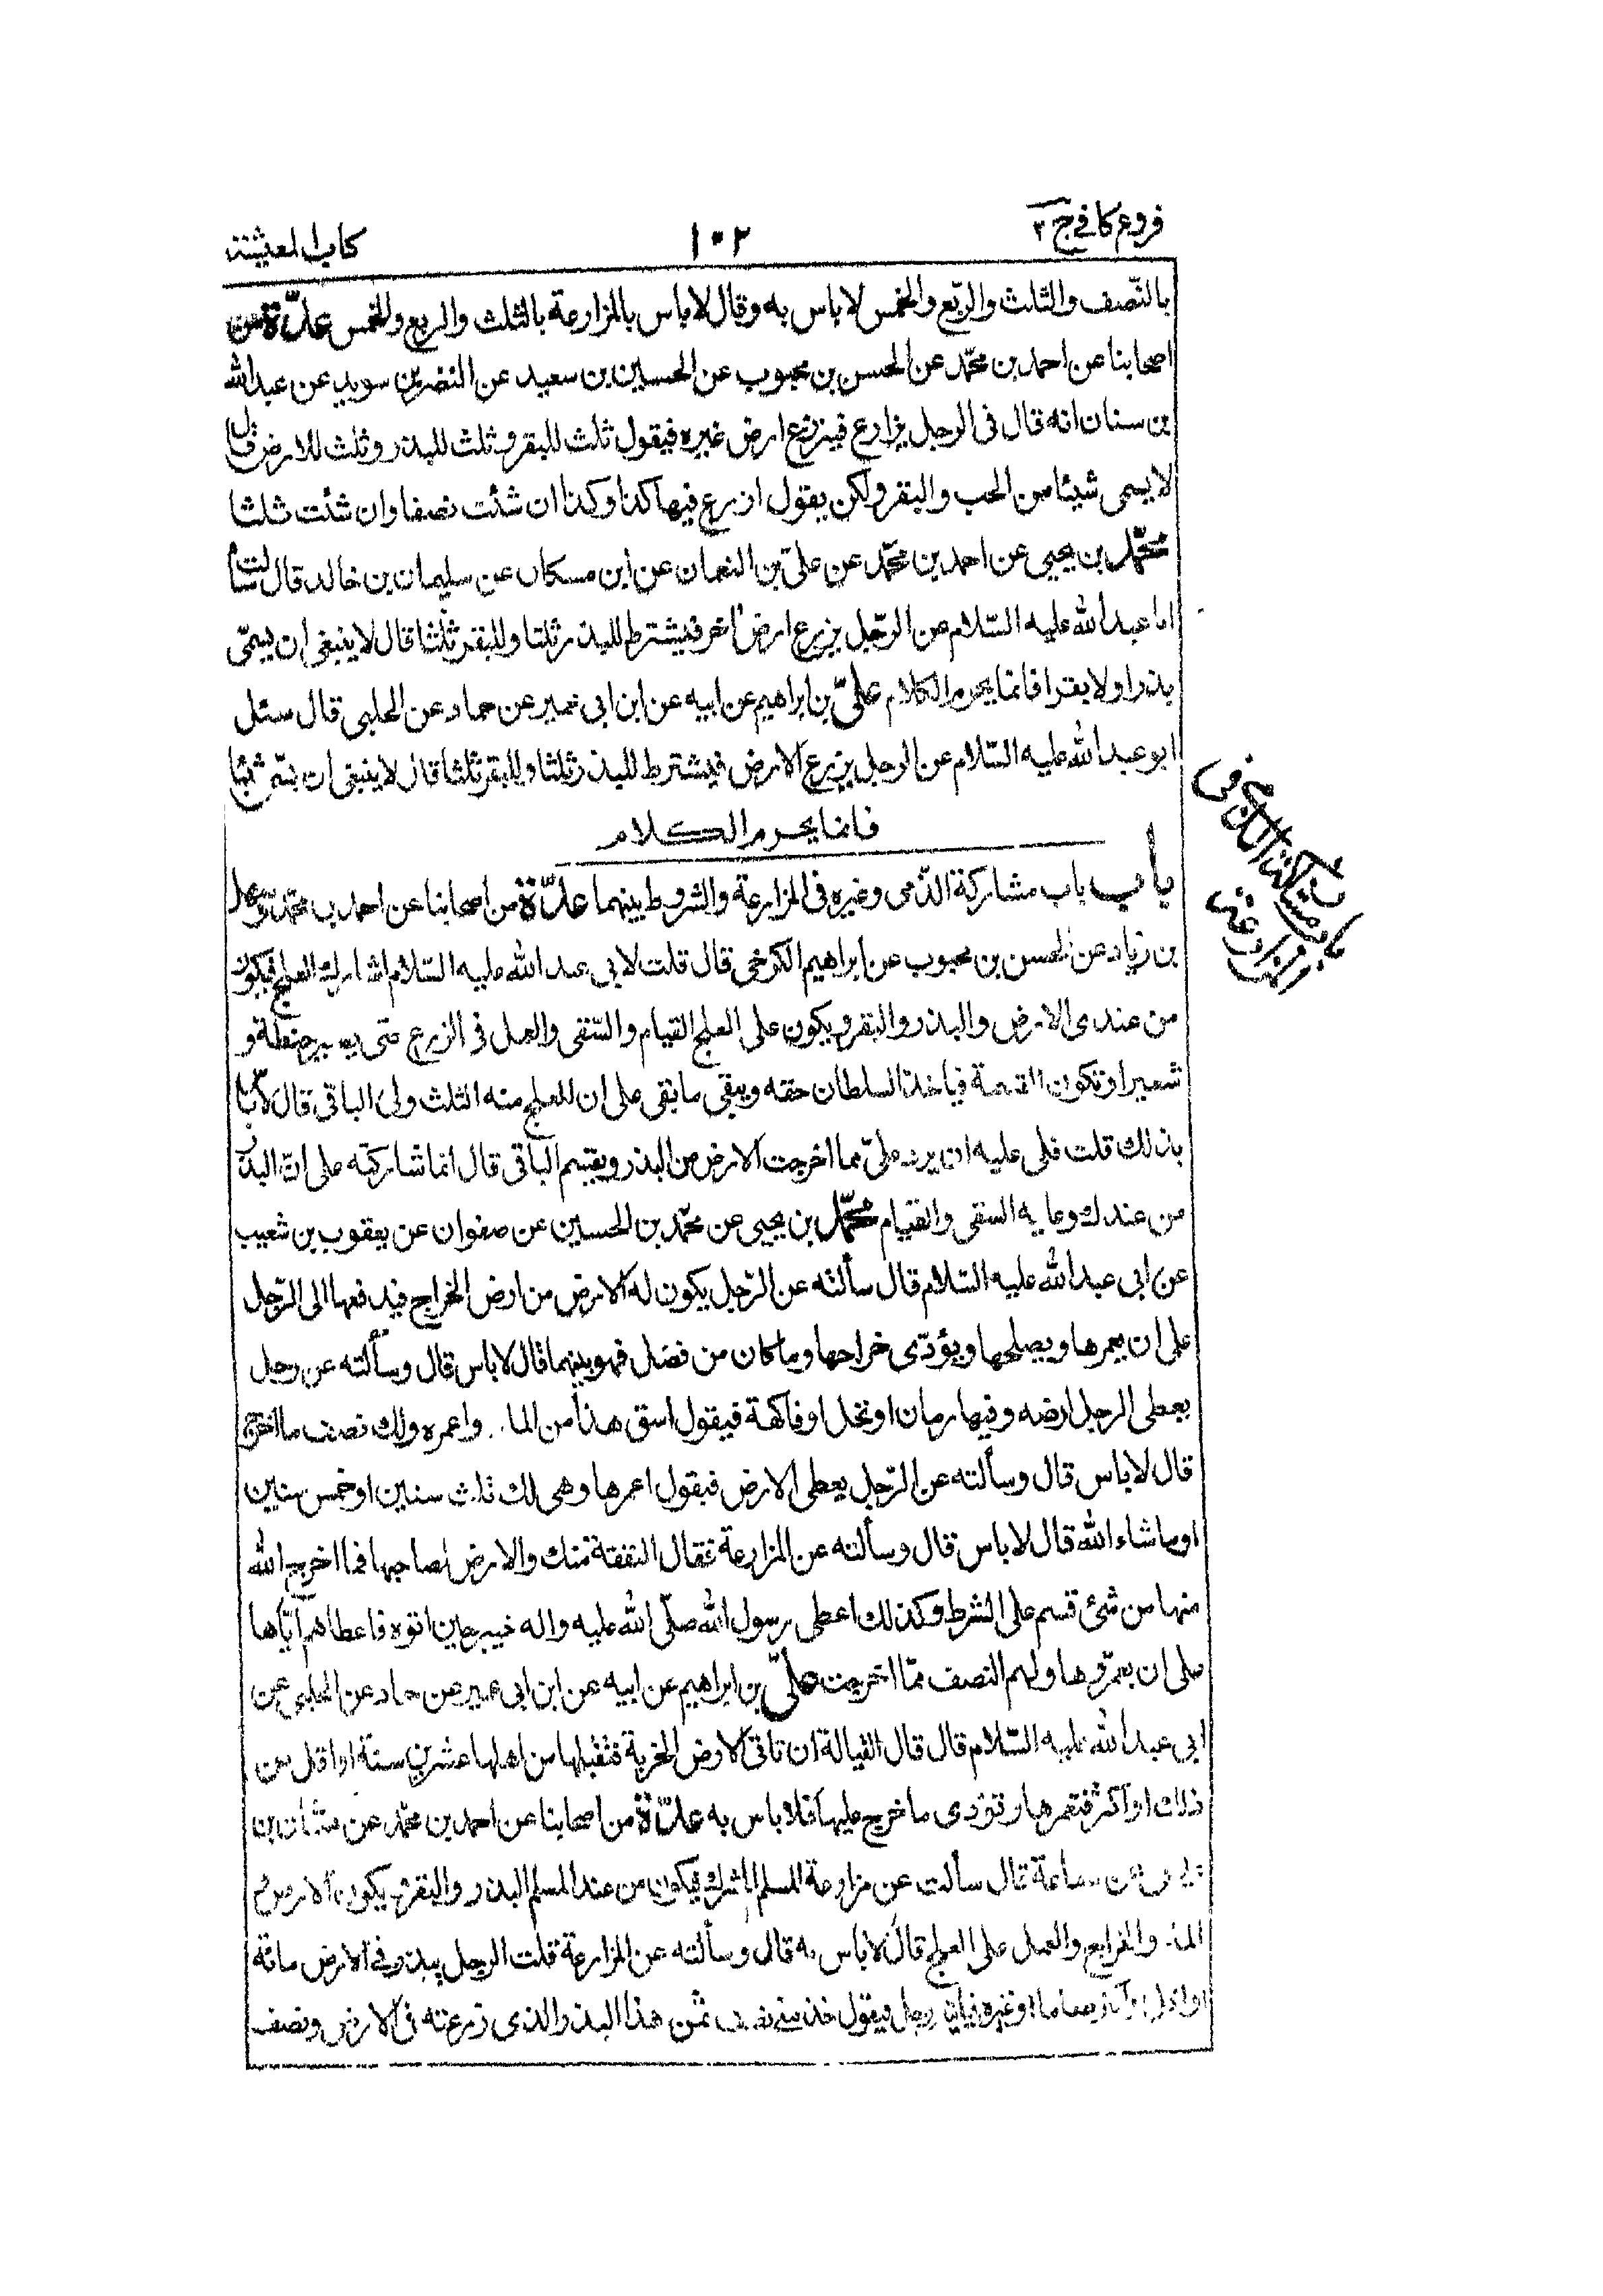 فروع كافي ج ٣
١٠٢
كتاب المعيشة
بالنّصف والثلث والرّبع والخمس لا باس به وقال لا باس بالمزارعة بالثلث والربع والخمس علّة من
اصحابنا عن احمد بن محمّد عن الحسن بن محبوب عن الحسين بن سعيد عن النضر بن سويد عن عبد الله
بن سنان انه قال فى الرجل يزارع فيزرع ارض غيره فيقول ثلث للبقر وثلث للبذر وثلث للارض قال
لا يسمى شيئا من الحب والبقر ولكن يقول ازرع فيها كذا وكذا ان شئت نصفا وان شئت ثلثا
محمّد بن يحيى عن احمد بن محمّد عن علىّ بن النعمان عن ابن مسكان عن سليمان بن خالد قال سألت
ابا عبد الله عليه السّلام عن الرّجل يزرع ارض اخر فيشترط للبذر ثلثا وللبقر ثلثا قال لا ينبغى ان يسمّى
بذرا ولا بقرا فانما يحرم الكلام علىّ بن ابراهيم عن ابيه عن ابن ابى عمير عن حماد عن الحلبى قال سئل
ابو عبد الله عليه السّلام عن الرجل يزرع الارض فيشترط للبذر ثلثا وللبقر ثلثا قال لا ينبغى ان يسمّى شيئا
فانما يحرم الكلام
باب باب مشاركة الذّمى وغيره فى المزارعة والشروط بينهما عدّة من اصحابنا عن احمد بن محمّد وسهل
بن زياد عن الحسن بن محبوب عن ابراهيم الكرخى قال قلت لابى عبد الله عليه السّلام اشارك العلج فيكون
من عندى الارض والبذر والبقر ويكون على العلج القيام والسّقى والعمل فى الزرع حتى يصير حنطة و
شعيرا وتكون القسمة فياخذ السلطان حقه ويبقى ما بقى على ان للعلج منه الثلث ولى الباقى قال لا باس
بذلك قلت فلى عليه ان يرد علىّ مما اخرجت الارض من البذر ويقسم الباقى قال انما شاركته على انّ البذر
من عندك وعليه السقى والقيام محمّد بن يحيى عن محمّد بن الحسين عن صفوان عن يعقوب بن شعيب
عن ابى عبد الله عليه السّلام قال سألته عن الرّجل يكون له الارض من ارض الخراج فيدفعها الى الرّجل
على ان يعمرها ويصلحها ويؤدّى خراجها وما كان من فضل فهو بينهما قال لا باس قال وسألته عن رجل
يعطى الرجل ارضه وفيها رمان او نخل او فاكهة فيقول اسق هذا من الماء واعمره ولك نصف ما اخرج
قال لا باس قال وسألته عن الرّجل يعطى الارض فيقول اعمرها وهى لك ثلث سنين او خمس سنين
او ما شاء الله قال لا باس قال وسألته عن المزارعة فقال النفقة منك والارض لصاحبها فما اخرج الله
منها من شئ قسم على الشرط وكذلك اعطى رسول الله صلّى الله عليه واله خيبر حين اتوه فاعطاهم ايّاها
على ان يعمّروها ولهم النصف ممّا اخرجت علىّ بن ابراهيم عن ابيه عن ابن ابى عمير عن حماد عن الحلبى عن
ابى عبد الله عليه السّلام قال قال القبالة ان تاتى الارض الخربة فتقبلها من اهلها عشرين سنة او اقل من
ذلك او اكثر فتعمرها وتؤدى ما خرج عليها فلا باس به عدّة من اصحابنا عن احمد بن محمّد عن عثمان بن
عيسى عن سماعة قال سألت عن مزارعة المسلم المشرك فيكون من عند المسلم البذر والبقر ويكون الارض و
الماء والخراج والعمل على العلج قال لا باس به قال وسألته عن المزارعة قلت الرجل يبذر فى الارض مائة
او اقل او اكثر طعاما او غيره فياتيه رجل فيقول خذ منى نصف ثمن هذا البذر الذى زرعته فى الارض ونصف
باب مشاركة الذمى
المزارعة